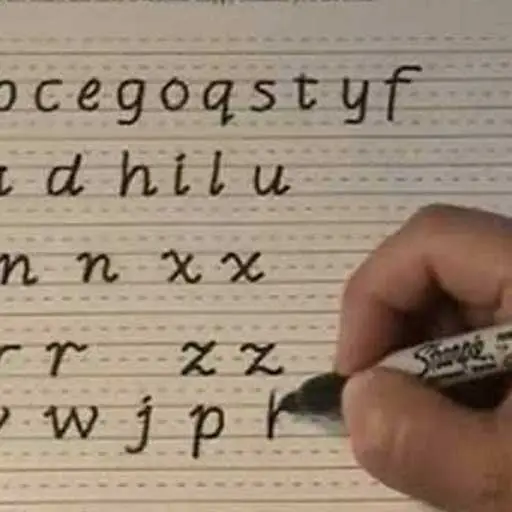 c e g o q s t y f
d h i l u
n n x x
r r z z
w j p
Sharpie